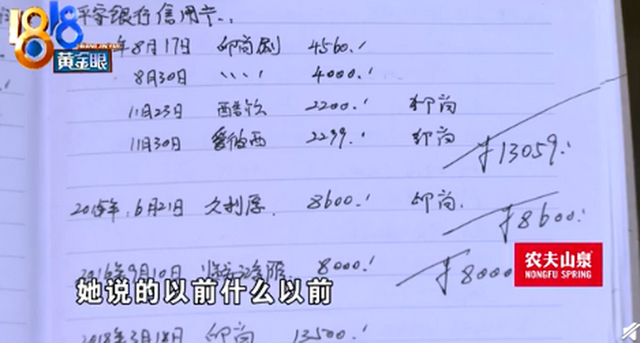 1818
黄金眼
平安银行信用卡
年8月17日 印尚 4560
8月30日 〃 4000
11月23日 2200 印尚
11月30日 爱的西 2299 印尚
¥13059
2015年6月21日 久利源 8600 印尚
¥8600
2016年9月10日 8000
¥8000
农夫山泉
NONGFU SPRING
她说的以前什么以前
2018年3月18日 印尚 13500